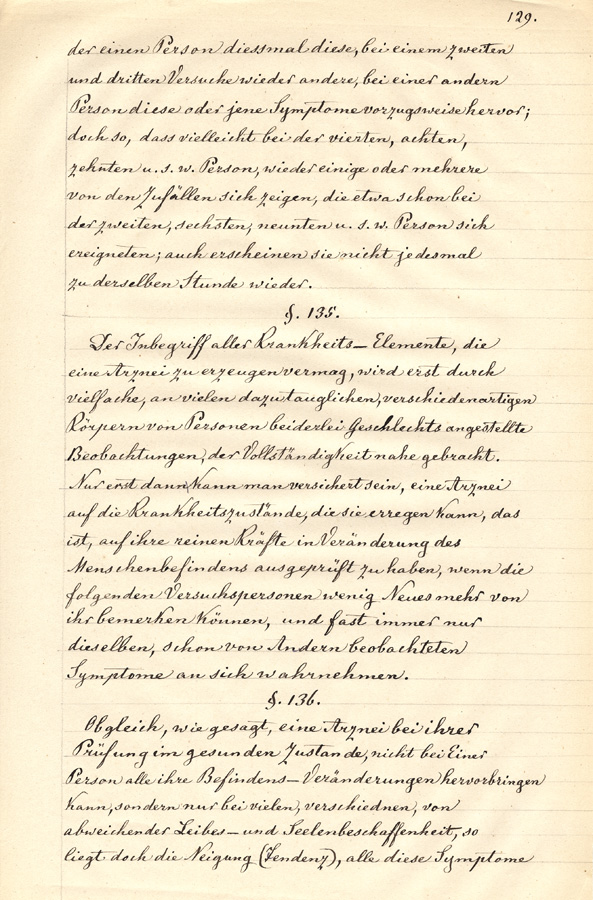 129.
der einen Person diessmal diese, bei einem zweiten
und dritten Versuche wieder andere, bei einer andern
Person diese oder jene Symptome vorzugsweise hervor;
doch so, dass vielleicht bei der vierten, achten,
zehnten u. s. w. Person, wieder einige oder mehrere
von den Zufällen sich zeigen, die etwa schon bei
der zweiten, sechsten, neunten u. s. w. Person sich
ereigneten; auch erscheinen sie nicht jedesmal
zu derselben Stunde wieder.
§. 135.
Der Inbegriff aller Krankheits-Elemente, die
eine Arznei zu erzeugen vermag, wird erst durch
vielfache, an vielen dazu tauglichen, verschiedenartigen
Körpern von Personen beiderlei Geschlechts angestellte
Beobachtungen, der Vollständigkeit nahe gebracht.
Nur erst dann kann man versichert sein, eine Arznei
auf die Krankheitszustände, die sie erregen kann, das
ist, auf ihre reinen Kräfte in Veränderung des
Menschenbefindens ausgeprüft zu haben, wenn die
folgenden Versuchspersonen wenig Neues mehr von
ihr bemerken können, und fast immer nur
dieselben, schon von Andern beobachteten
Symptome an sich wahrnehmen.
§. 136.
Obgleich, wie gesagt, eine Arznei bei ihrer
Prüfung im gesunden Zustande, nicht bei Einer
Person alle ihre Befindens-Veränderungen hervorbringen
kann, sondern nur bei vielen, verschiednen, von
abweichender Leibes- und Seelenbeschaffenheit, so
liegt doch die Neigung (Tendenz), alle diese Symptome